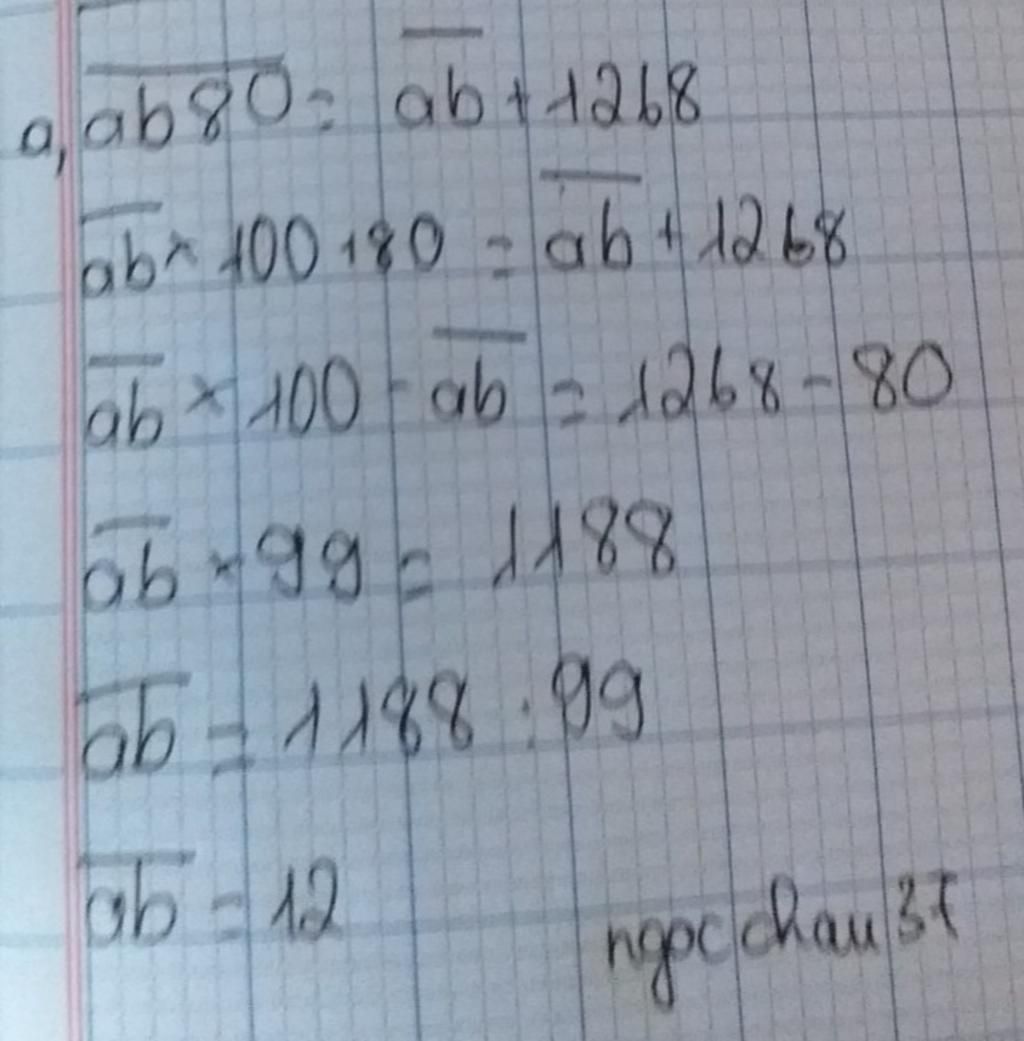 a, ab80 = ab + 1268
ab × 100 + 80 = ab + 1268
ab × 100 - ab = 1268 - 80
ab × 99 = 1188
ab = 1188 : 99
ab = 12
ngocchau37